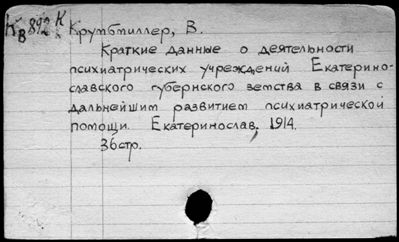 К В 892 К
Крумбмиллер, В.
Краткие данные о деятельности
психиатрических учреждений Екатерино-
славского губернского земства в связи с
дальнейшим развитием психиатрической
помощи. Екатеринослав, 1914.
36стр.